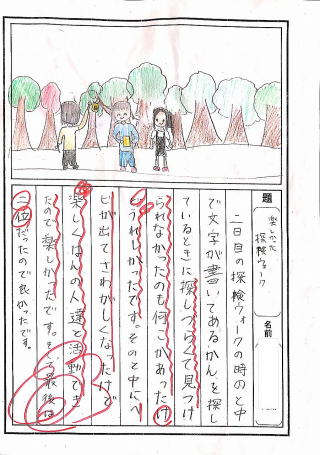 題
楽しかった
探検ウォーク
名前
二日目の探検ウォークの時のと中
で文字が書いてあるかんを探し
ているときに探しづらくて見つけ
られなかったのも何こかあったけ
どうれしかったです。そのと中にへ
ビが出てさわがしくなったけど
楽しくはんの人達と活動でき
たので楽しかったです。そして最後は
二位だったので良かったです。